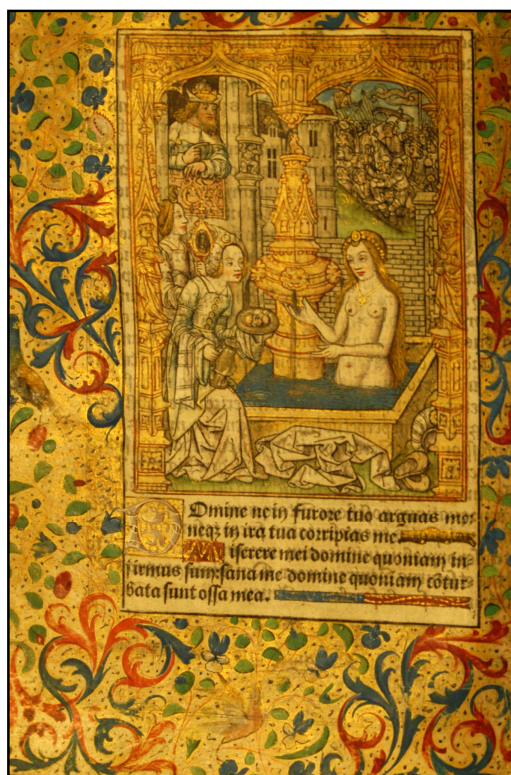 Domine ne in furore tuo arguas me:
neqꝫ in ira tua corripias me.
Miserere mei domine quoniam in-
firmus sum: sana me domine quoniam cōtur-
bata sunt ossa mea.